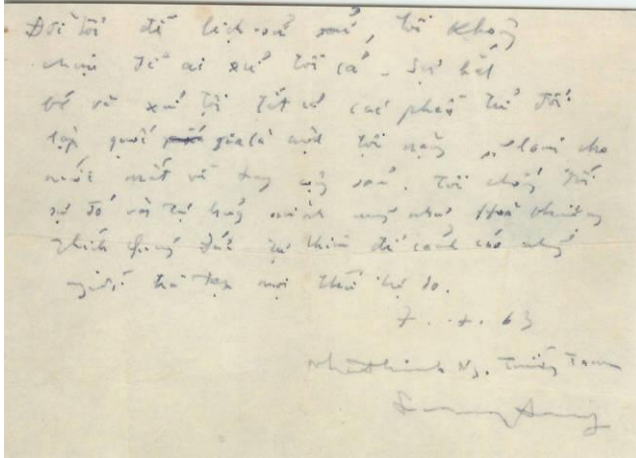 Đời tôi để lịch-sử xử, tôi không
chịu để ai xử tôi cả. Sự bắt
bớ và xử tội tất cả các phần tử đối
lập quốc gia là một tội nặng, sẽ làm cho
nước mất về tay cộng sản. Tôi chống đối
sự đó và tự hủy mình cũng như Hoà thượng
Thích Quảng Đức tự thiêu để cảnh cáo những
người chà đạp mọi thứ tự do.
7 . 7 . 63
Nhất Linh Ng. Tường Tam